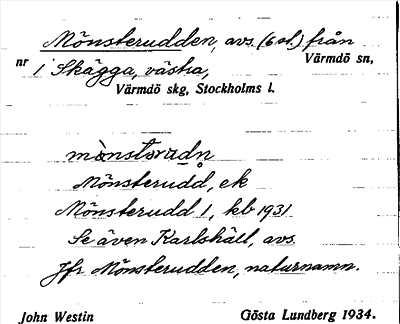 Mönsterudden, avs. (6 st.) från
nr 1 Skägga, västra, Värmdö sn,
Värmdö skg, Stockholms l.
mònstərùdn̥
Mönsterudd, ek
Mönsterudd 1, kb 1931
Se även Karlshäll, avs.
Jfr Mönsterudden, naturnamn.
John Westin Gösta Lundberg 1934.